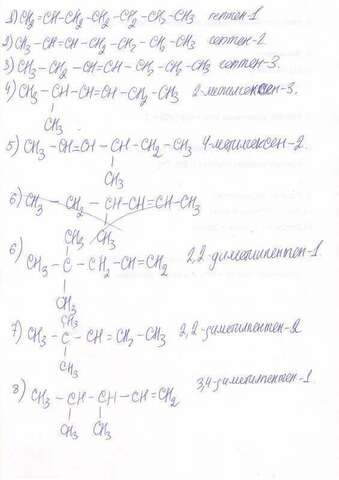 1) CH2=CH-CH2-CH2-CH2-CH2-CH3 гептен-1
2) CH3-CH=CH-CH2-CH2-CH2-CH3 гептен-2
3) CH3-CH2-CH=CH-CH2-CH2-CH3 гептен-3
4) CH3-CH-CH=CH-CH2-CH3 2-метилгексен-3.
CH3
5) CH3-CH=CH-CH-CH2-CH3 4-метилгексен-2.
CH3
6) CH3-CH2-CH-CH=CH-CH3
CH3
CH3
6) CH3-C-CH2-CH=CH2 2,2-диметилпентен-1.
CH3
CH3
7) CH3-C-CH=CH2-CH3 2,2-диметилпентен-2
CH3
8) CH3-CH-CH-CH=CH2 3,4-диметилпентен-1.
CH3 CH3